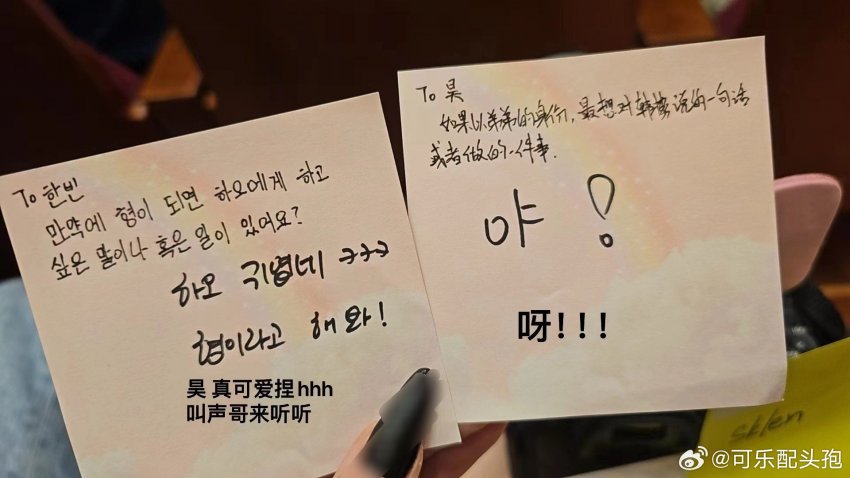 To 한빈
만약에 형이 되면 하오에게 하고
싶은 말이나 혹은 일이 있어요?
하오 귀엽네 ㅋㅋㅋ
형이라고 해봐!
昊 真可爱捏hhh
叫声哥来听听
To 昊
如果以弟弟的身份，最想对韩彬说的一句话
或者做的一件事.
야!
呀!!!
@可乐配头孢